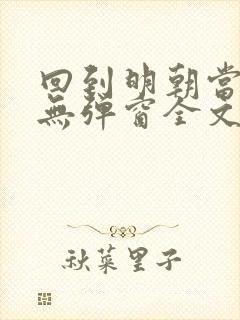 回到明朝當
無彈窗全文
秋菜里子